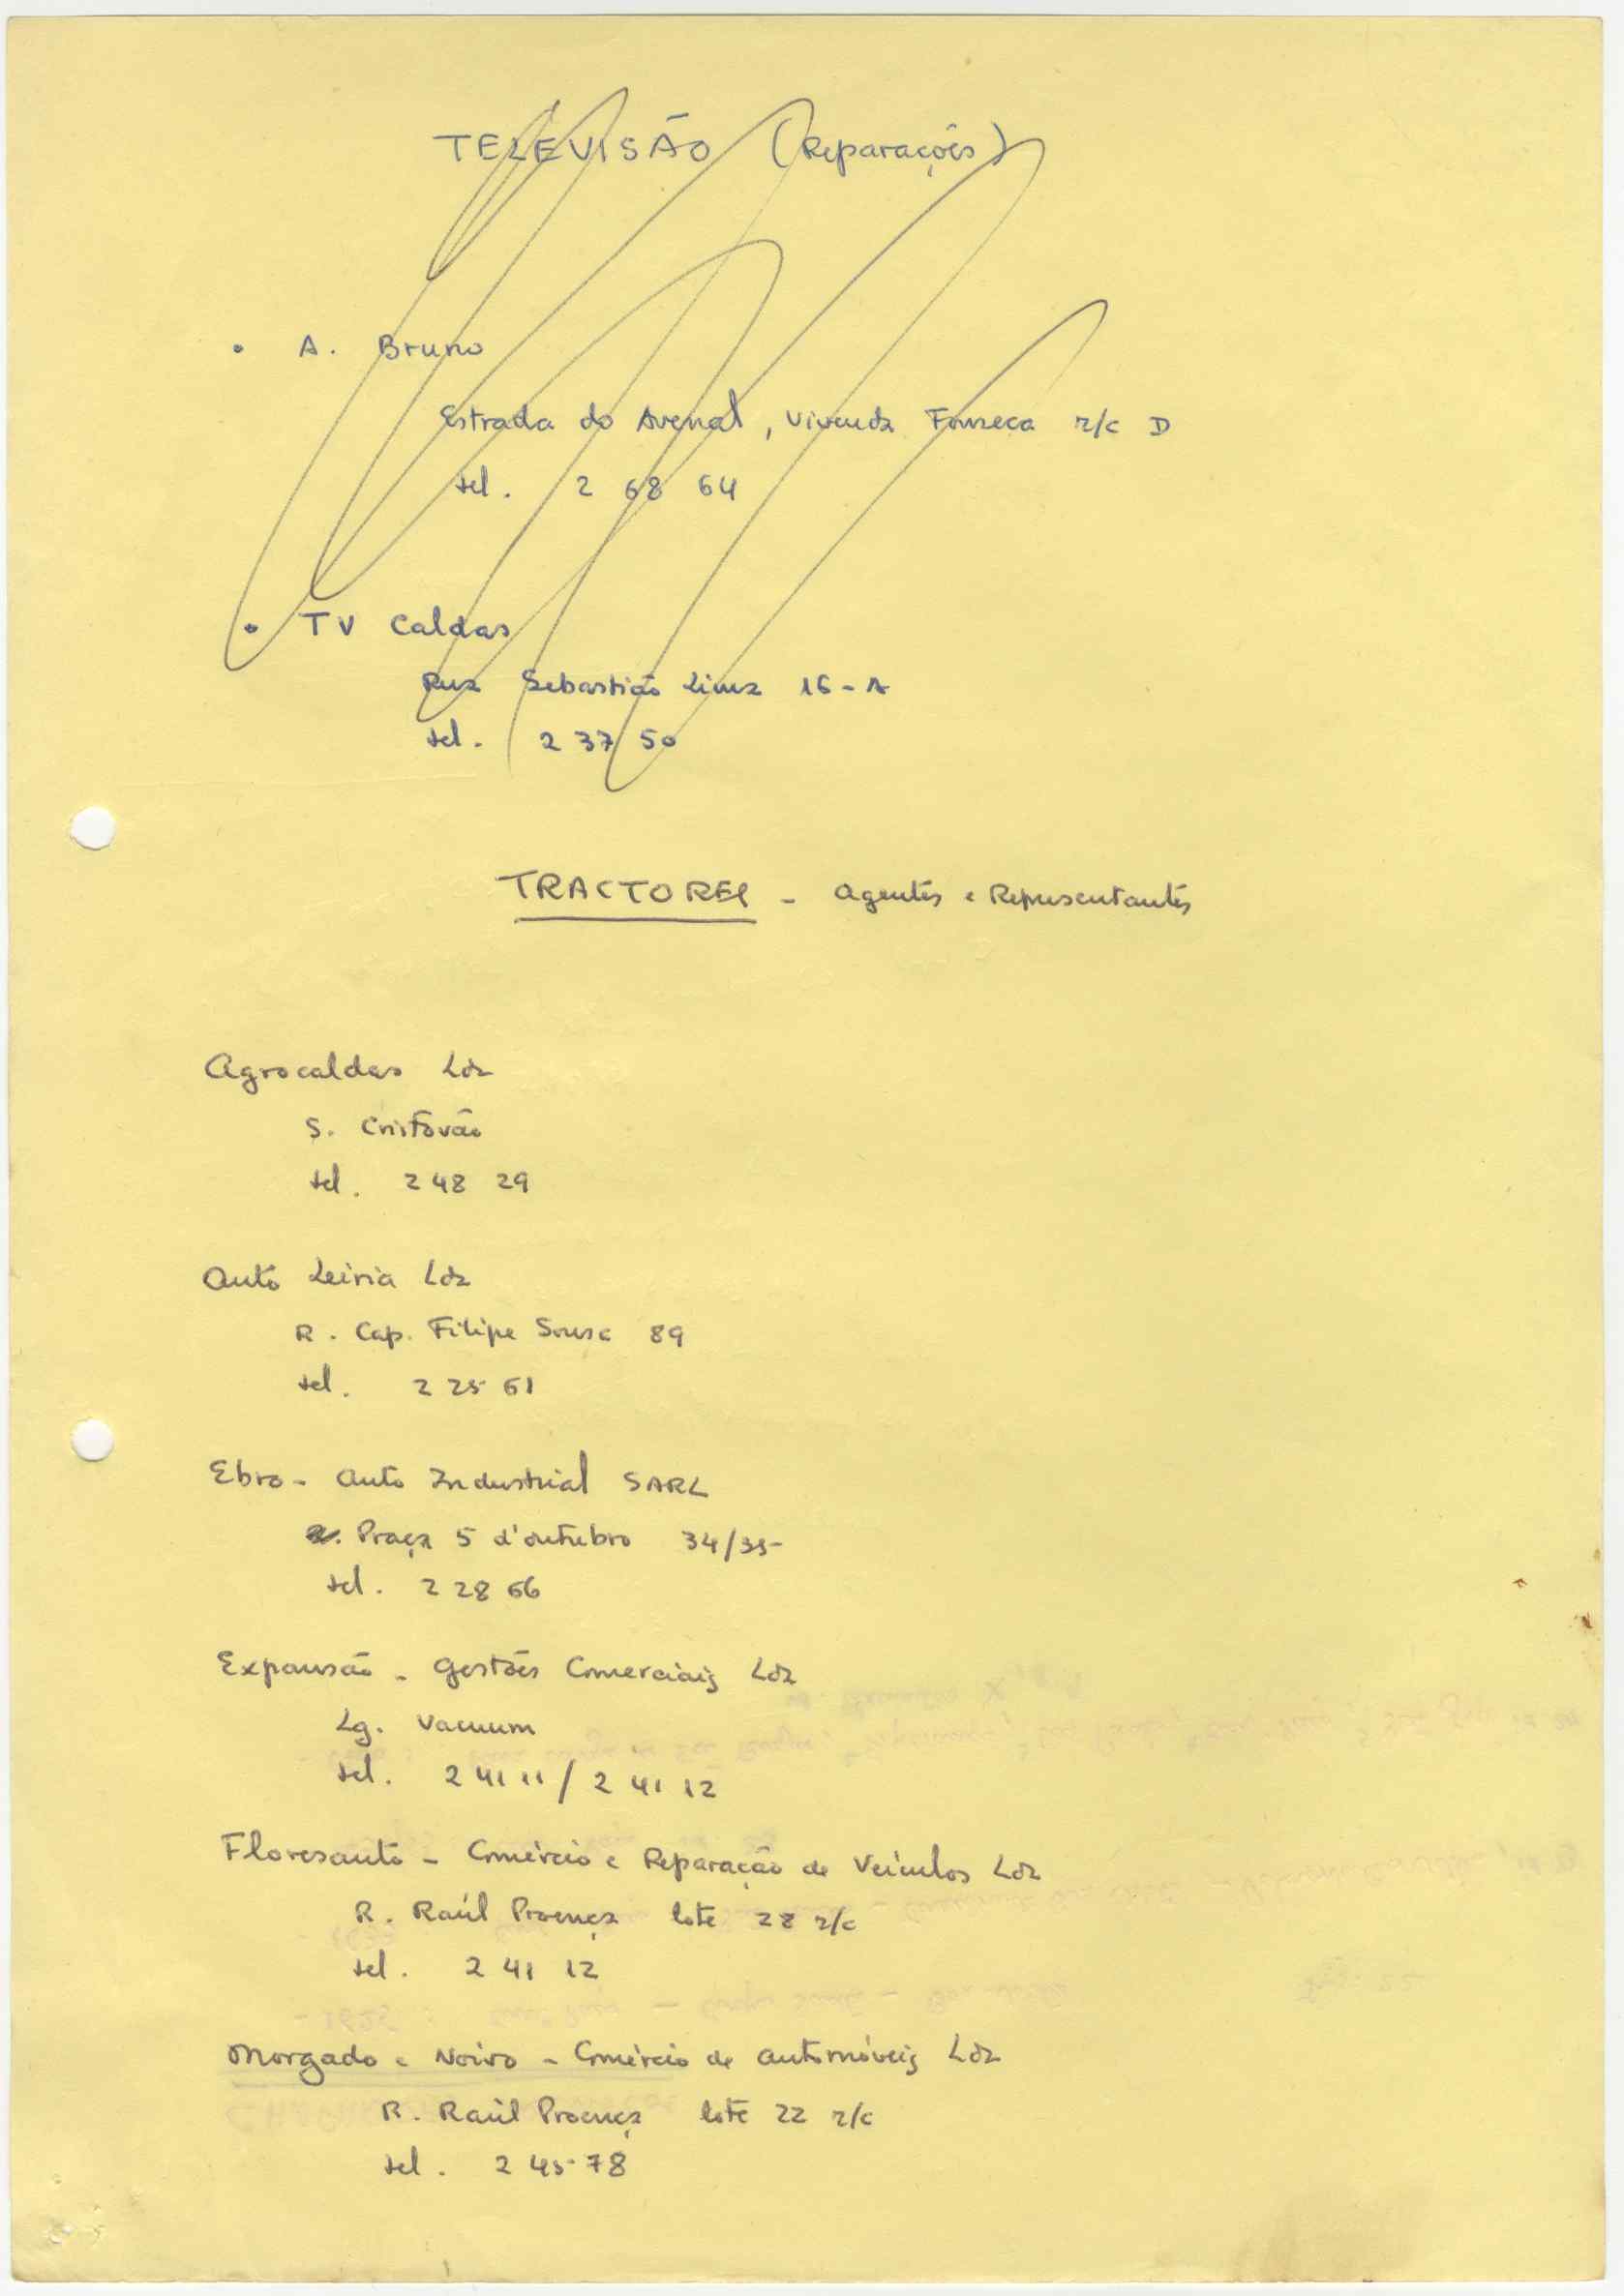 TELEVISÃO (Reparações)
• A. Bruno
Estrada do Avenal, Vivenda Fonseca r/c D
tel. 2 68 64
• TV Caldas
Rua Sebastião Lima 16-A
tel. 2 37 50
TRACTORES - Agentes e Representantes
Agrocaldas Lda
S. Cristovão
tel. 2 48 29
Auto Leiria Lda
R. Cap. Filipe Sousa 89
tel. 2 25 61
Ebro - Auto Industrial SARL
Praça 5 d'outubro 34/35
tel. 2 28 66
Expansão - Gestões Comerciais Lda
Lg. Vacuum
tel. 2 41 11 / 2 41 12
Floresauto - Comércio e Reparação de Veículos Lda
R. Raúl Proença lote 22 r/c
tel. 2 41 12
Morgado e Noivo - Comércio de Automóveis Lda
R. Raúl Proença lote 22 r/c
tel. 2 45 78